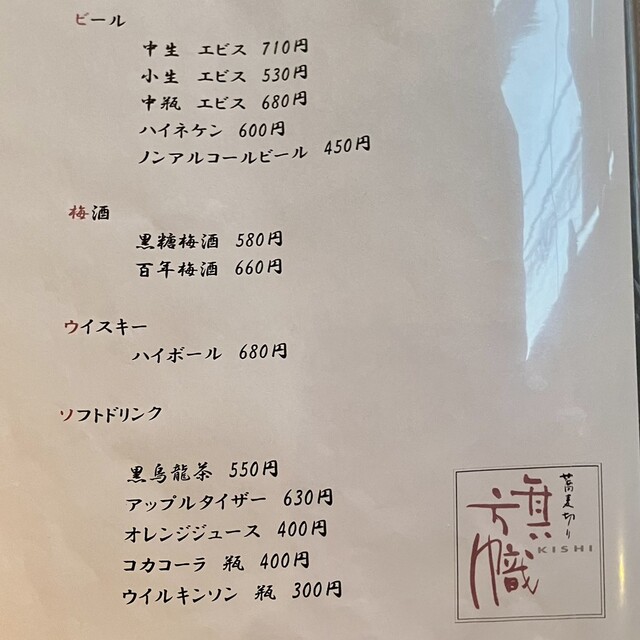 ビール
中生 エビス 710円
小生 エビス 530円
中瓶 エビス 680円
ハイネケン 600円
ノンアルコールビール 450円
梅酒
黒糖梅酒 580円
百年梅酒 660円
ウイスキー
ハイボール 680円
ソフトドリンク
黒烏龍茶 550円
アップルタイザー 630円
オレンジジュース 400円
コカコーラ 瓶 400円
ウイルキンソン 瓶 300円
蕎麦切り
旗幟
KISHI